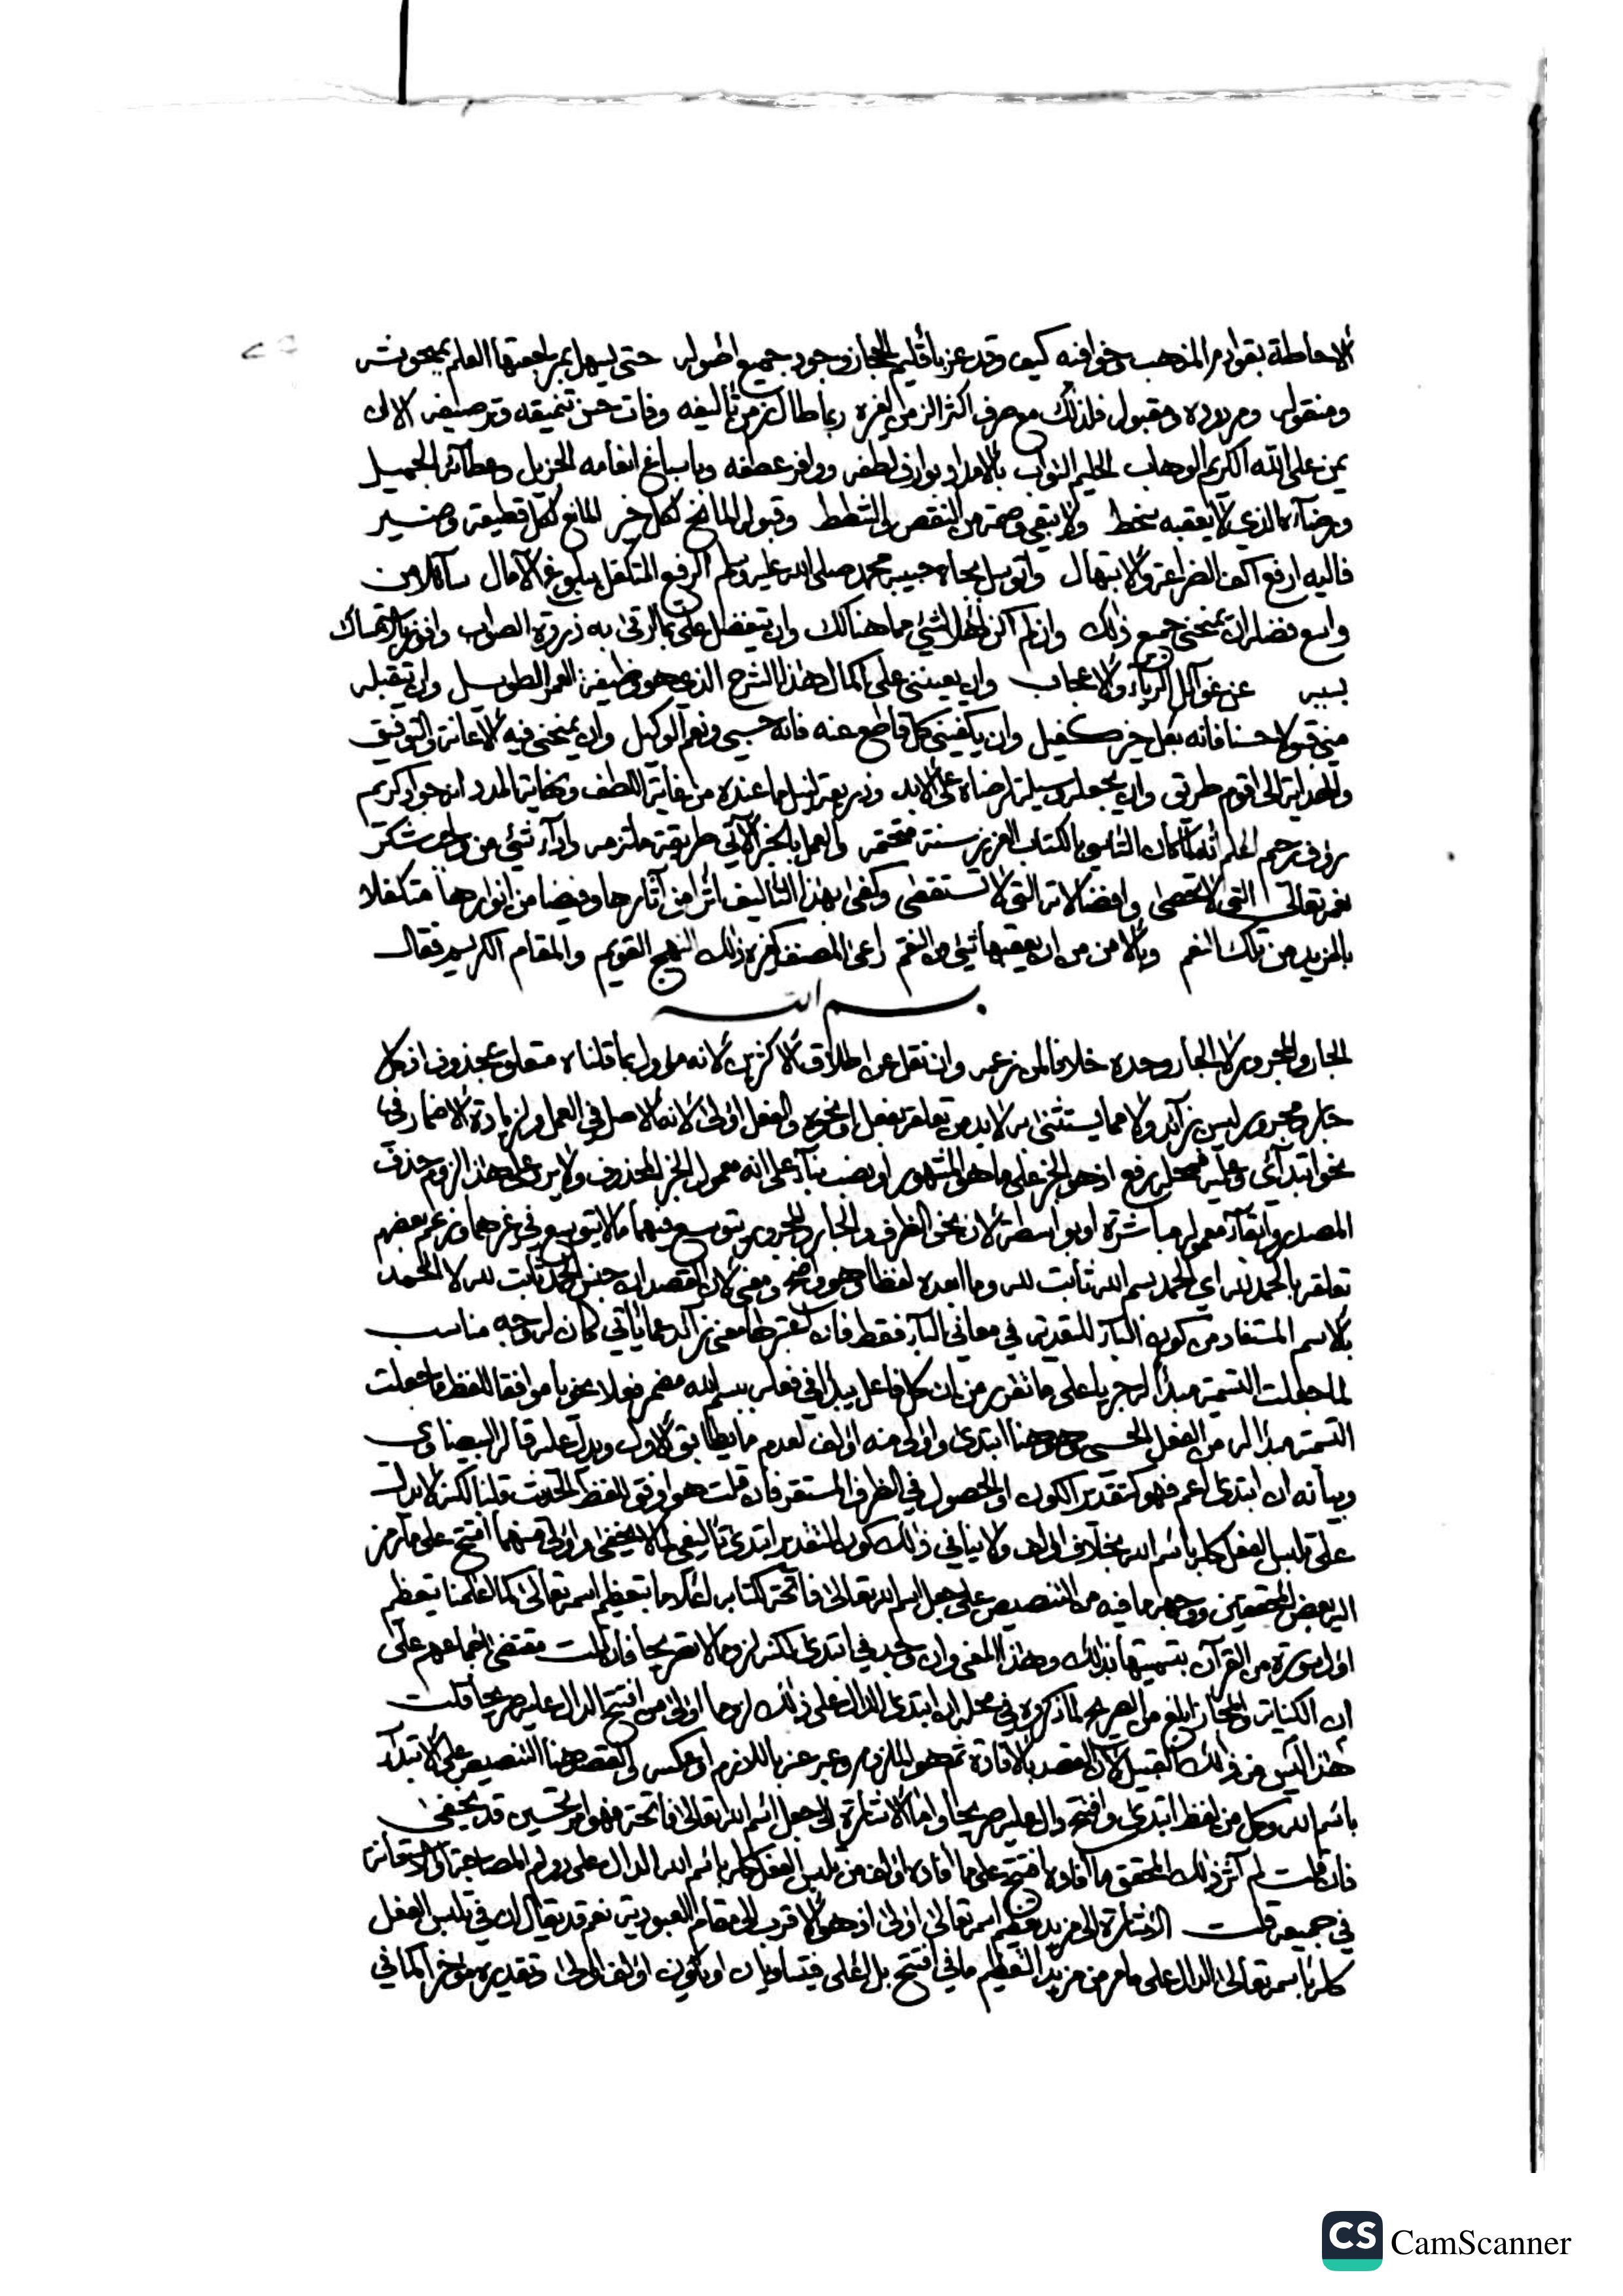 الاحاطة بقوادم المذهب وخوافيه كيف وقد عز باقليم الحجاز وجود جميع اصوله حتى يسهل بمراجعتها العلم بمبحوثه
ومنقوله ومردوده ومقبوله فلذلك مع صرف اكثر الزمن لغيره ربما طال زمن تأليفه وفات حسن تنميقه وترصيفه الا ان
يمن على الله الكريم الوهاب الحليم التواب بالامداد بوارف لطفه ووافر عطفه وباسباغ انعامه الجزيل وعطائه الجميل
ورضاه الذي لا يعقبه سخط ولا يبقى وصمة من النقص والشطط وقبوله المانح لكل خير المانع لكل قطيعة وضير
فاليه ارفع اكف الضراعة والابتهال واتوسل بجاه حبيبه محمد صلى الله عليه وسلم الرفيع المتكفل ببلوغ الآمال سائلا من
واسع فضله ان يمنحني جميع ذلك وان لم اكن اهلا لشيء مما هنالك وان يتفضل علي بما ارقى به ذروة الصواب وافوز بالاستمساك
بسببه عن غوائل الرياء والاعجاب وان يعينني على اكمال هذا الشرح الذي هو وظيفة العمر الطويل وان يتقبله
مني قبولا حسنا فانه بكل خير كفيل وان يكفيني كل قاطع عنه فانه حسبي ونعم الوكيل وان يمنحني فيه الاعانة والتوفيق
والهداية الى اقوم طريق وان يجعله وسيلة لرضاه على الابد وذريعة لنيل ما عنده من غاية اللطف ونهاية المدد انه جواد كريم
رؤف رحيم ثم اعلم انه لما كان التأسي بالكتاب العزيز سنة متحتمة والعمل بالخبر الآتي طريقة ملتزمة واداء شيء من واجب شكر
نعمه تعالى التي لا تحصى وافضالاته التي لا تستقصى وكفى بهذا التأليف اثرا من آثارها وفيضا من انوارها متكفلا
بالمزيد من تلك النعم وبالامن من ان يعقبها شيء من النقم راعى المصنف كغيره ذلك النهج القويم والمقام الكريم فقال
بسم الله
الجار والمجرور لا الجار وحده خلافا لمن زعمه وان نقل عن اطلاق الاكثرين لانه مأول بما قلناه متعلق بمحذوف اذ كل
جار ومجرور ليس بزائد ولا مما يستثنى به لا بد من تعلقه بفعل او نحوه والفعل اولى لانه الاصل في العمل ولزيادة الاضمار في
نحو ابتدائي وعليه فمحله رفع اذ هو الخبر على ما هو المشهور او نصب بناء على انه معمول الخبر المحذوف ولا يرد على هذا لزوم حذف
المصدر وابقاء معموله مباشرة او بواسطة لان نحو الظرف والجار والمجرور يتوسع فيهما ما لا يتوسع في غيرهما وزعم بعضهم
تعلقه بالحمد لله اي الحمد بسم الله ثابت لله وما ابعده لفظا وهو واضح ومعنى لان القصد ان جنس الحمد ثابت لله لا الحمد
بالاسم المستفاد من كون الباء للتعدية في معاني الباء فقط فان اعتبر لها معنى زائد مما يأتي كان له وجه مناسب
لما جعلت التسمية مبدأ له جريا على ما تقرر من ان كل فاعل يبدأ في فعله ببسم الله مضمر فعلا نحويا موافقا للفظ ما جعلت
التسمية مبدأ له من الفعل الحسي وهو هنا ابتدئ واولى منه اؤلف لعدم ما يطابق الاول ويدل عليه قاله البيضاوي
وبيانه ان ابتدئ اعم فهو كتقدير الكون او الحصول في الظرف المستقر فان قلت هو اوفق للفظ الحديث قلنا لكنه لا يدل
على تلبس الفعل كله باسم الله بخلاف اؤلف ولا ينافي ذلك كون التقدير ابتدئ تأليفي لما لا يخفى واولى منهما افتتح على ما رمز
اليه بعض المحققين ووجهه ما فيه من التنصيص على جعل اسم الله تعالى فاتحة كتابه اعلاما بتعظيم اسمه تعالى كما علمنا تعظيم
اول سورة من القرآن بتسميتها بذلك وهذا المعنى وان وجد في ابتدئ لكنه لزوما لا تصريحا فان قلت مقتضى اجماعهم على
ان الكناية والمجاز ابلغ من الصريح لما ذكروه في محله ان ابتدئ الدال على ذلك لزوما اولى من افتتح الدال عليه صريحا قلت
هذا ليس من ذلك القبيل لان القصد بالافادة ثم هو الملزوم وعبر عنه باللازم او عكسه والقصد هنا التنصيص على الابتداء
باسم الله وكل من لفظ ابتدئ وافتتح دال عليه صريحا واما الاشارة الى جعل اسم الله تعالى فاتحة فهو امر تحسيني قد يخفى
فان قلت لم آثر ذلك المحقق ما افاده افتتح على ما افاده اؤلف من تلبس الفعل كله باسم الله الدال على دوام المصاحبة او الاستعانة
في جميعه قلت الاشارة الى مزيد تعظيم اسمه تعالى اولى اذ هو الاقرب الى مقام العبودية نعم قد يقال ان في تلبس الفعل
كله باسمه تعالى الدال على ما مر من مزيد التعظيم ما في افتتح بل اعلى فيتساويان او يكون اؤلف اولى وتقديره مؤخرا كما في
CS CamScanner